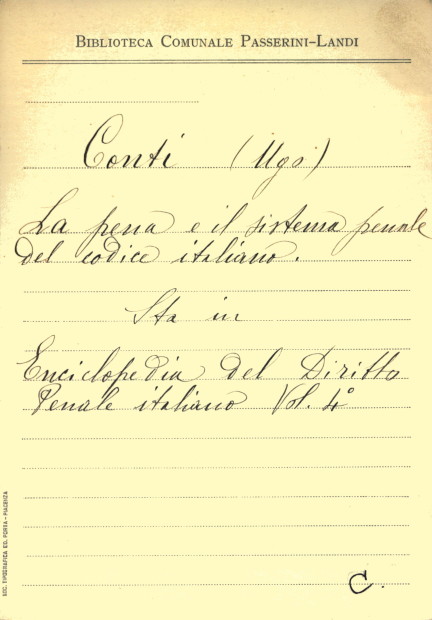 BIBLIOTECA COMUNALE PASSERINI-LANDI
Conti (Ugo)
La pena e il sistema penale
del codice italiano.
Sta in
Enciclopedia del Diritto
Penale italiano Vol. 4°
C.
SOC. TIPOGRAFICA ED. PORTA - PIACENZA